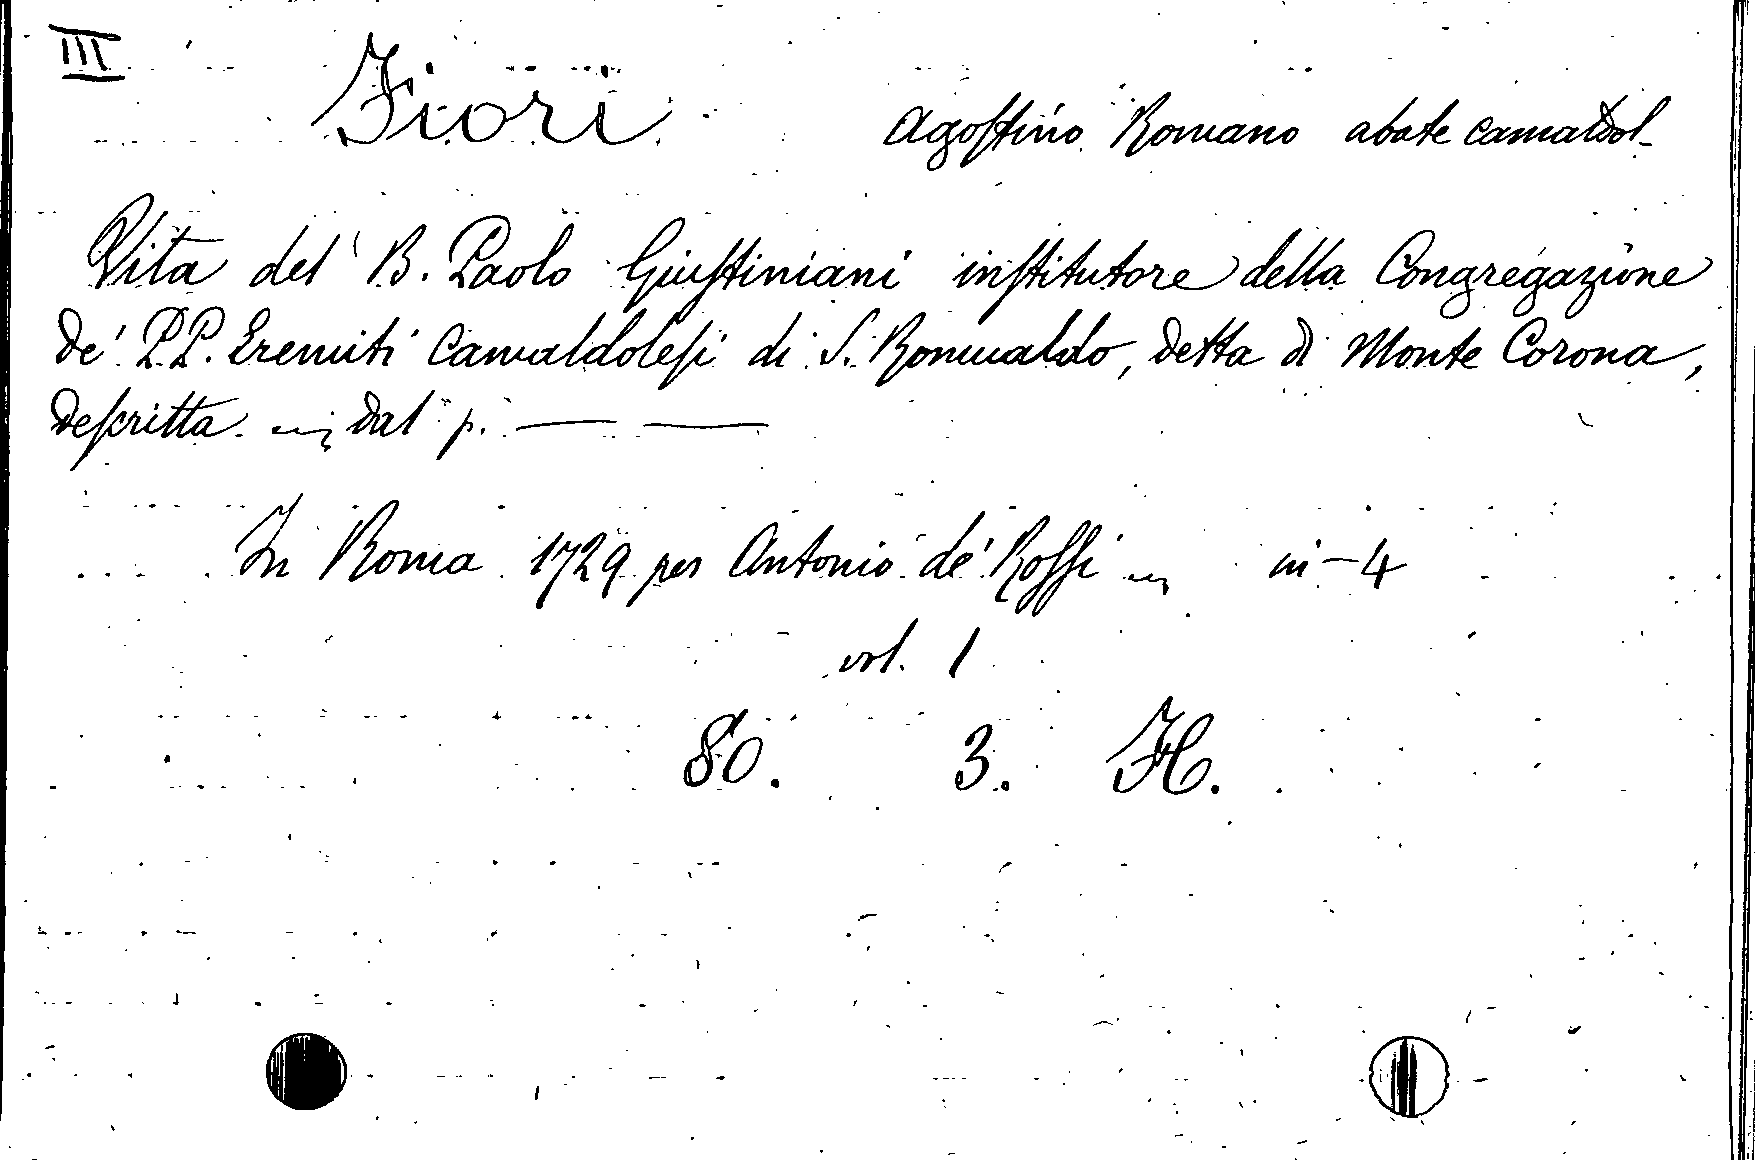 III
Fiori Agostino Romano abate camaldol.
Vita del B. Paolo Giustiniani institutore della Congregazione
de' P.P. Eremiti Camaldolesi di S. Romualdo, detta di Monte Corona,
descritta ... dal p. — —
In Roma 1729 per Antonio de' Rossi ... in-4
vol. 1
80. 3. H.